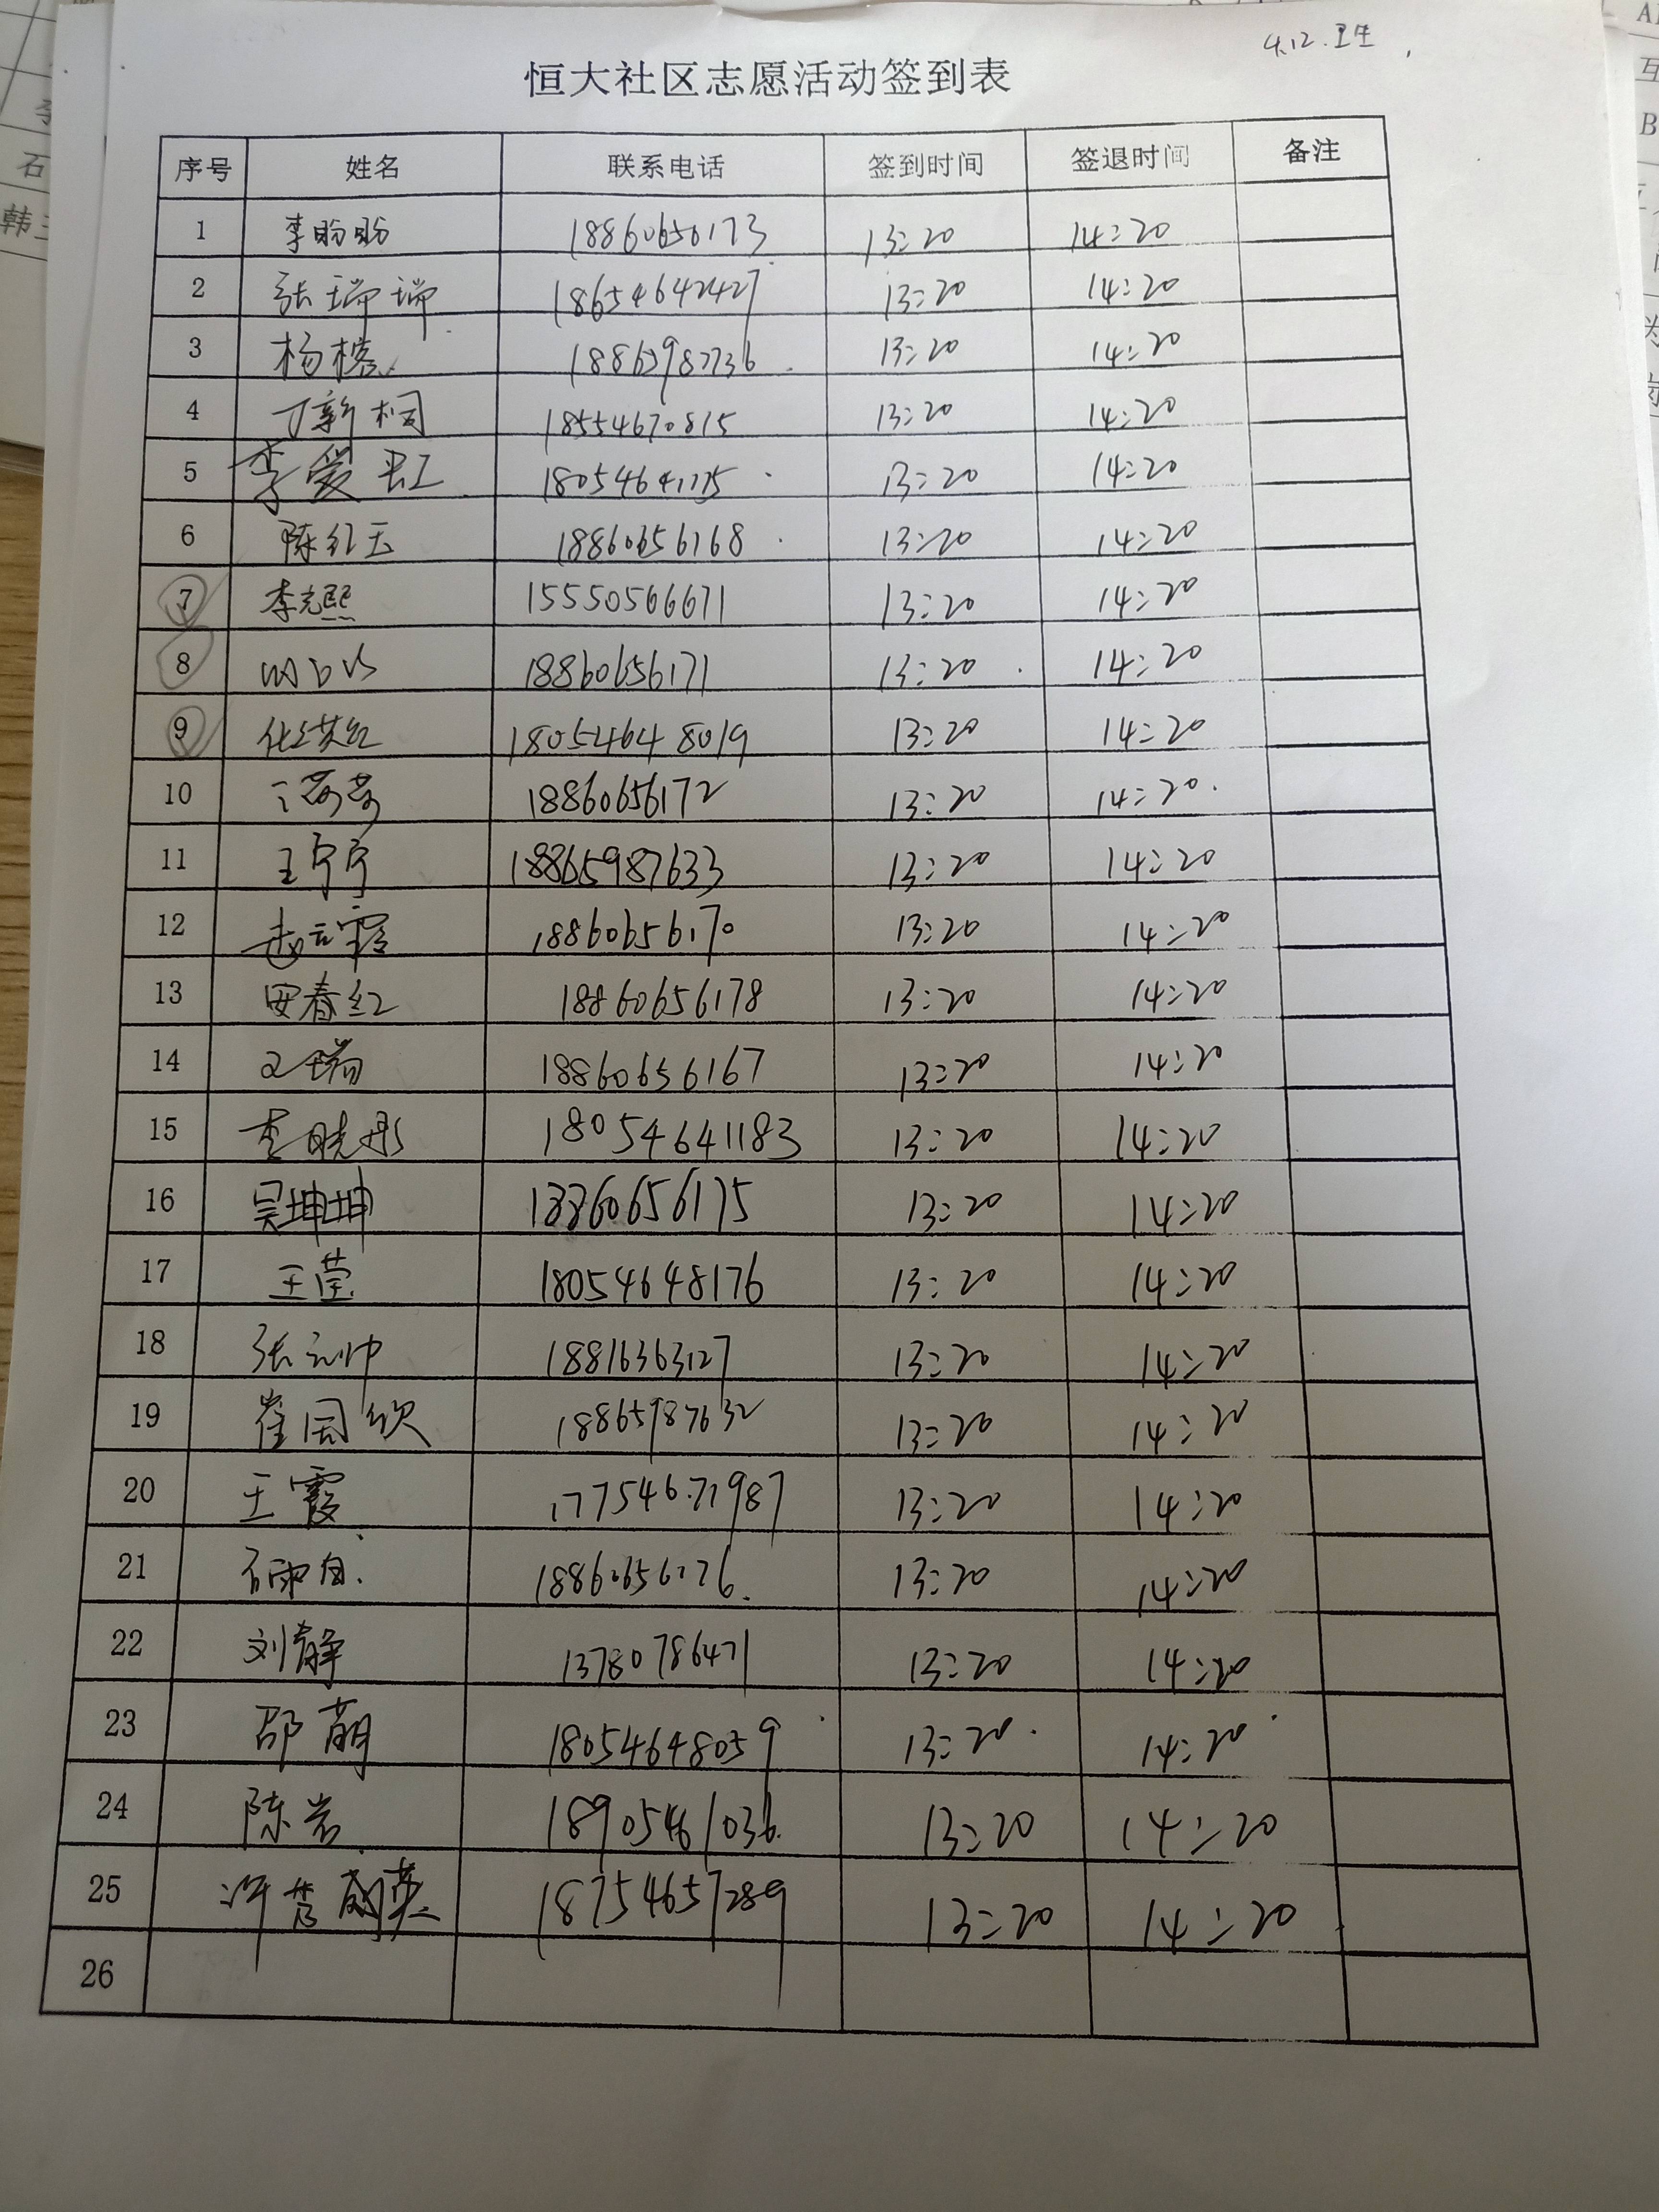 4.12.卫生
恒大社区志愿活动签到表
序号 姓名 联系电话 签到时间 签退时间 备注
1 李盼盼 18860656173 13:20 14:20
2 张瑞瑞 18654642427 13:20 14:20
3 杨楼 13:20 14:20
4 丁新桐 18554670815 13:20 14:20
5 李爱虹 18054641175 13:20 14:20
6 陈红玉 18860656168 13:20 14:20
7 李克熙 15550566671 13:20 14:20
8 18860656171 13:20 14:20
9 18054648019 13:20 14:20
10 18860656172 13:20 14:20
11 王宁宁 18865987633 13:20 14:20
12 赵云霞 18860656170 13:20 14:20
13 田春红 18860656178 13:20 14:20
14 18860656167 13:20 14:20
15 李晓彤 18054641183 13:20 14:20
16 吴坤坤 18860656175 13:20 14:20
17 王莹 18054648176 13:20 14:20
18 18816363127 13:20 14:20
19 崔国欣 18865987632 13:20 14:20
20 王霞 17754671987 13:20 14:20
21 18860656176 13:20 14:20
22 刘静 13780786471 13:20 14:20
23 邵萌 18054648059 13:20 14:20
24 陈岩 18905461036 13:20 14:20
25 18754657289 13:20 14:20
26